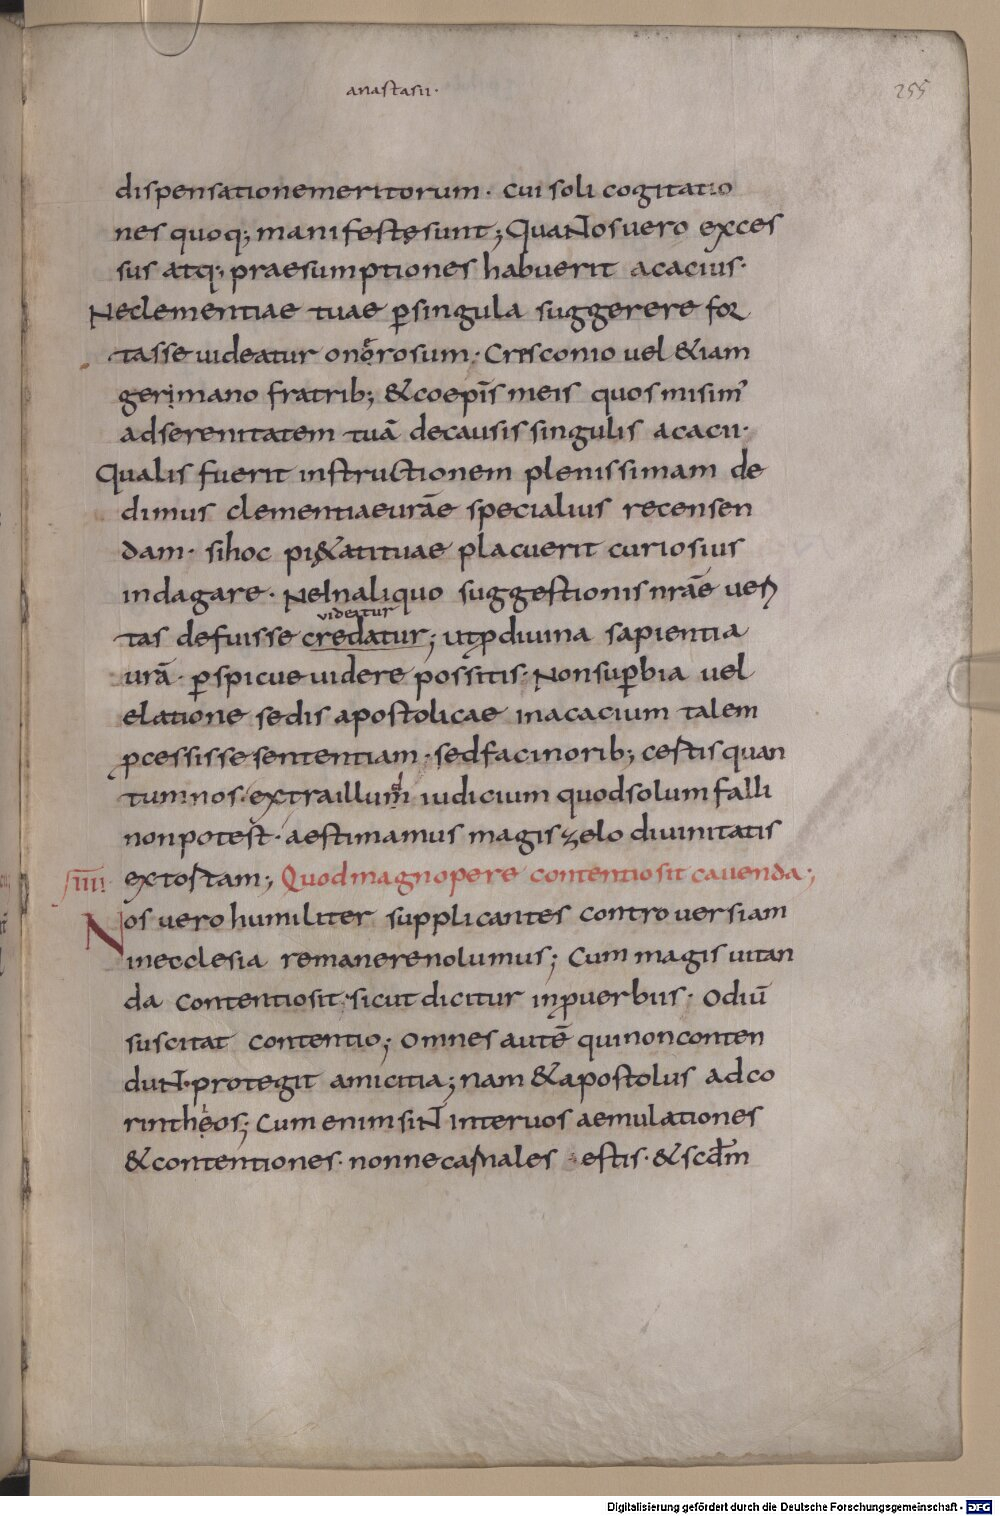 anastasii·
255
dispensationemeritorum· cui soli cogitatio
nes quoq; manifestę sunt; QuaNos vero exces
sus atq; praesumptiones habuerit acacius·
Neclementiae tuae ꝑsingula suggerere for
tasse uideatur onorosum· Cresconio vel &iam
gerimano fratrib; & coepīs meis quos misim᾽
adserenitatem tuā decausis singulis acacii·
Qualis fuerit instructionem plenissimam de
dimus clementiae urāe specialius recensen
dam· si hoc pi&atituae placuerit curiosius
indagare· NeInaliquo suggestionis nrāe ueri
videatur
tas defuisse credatur; utꝓdiuina sapientia
urā· ꝑspicue uidere possitis· Nonsuꝑbia vel
elatione sedis apostolicae inacacium talem
ꝓcessisse sententiam· sed facinorib; certis quan
tum nos· extra illum iudicium quod solum falli
non potest· aestimamus magis zelo diuinitatis
extortam; Quodmagnopere contentio sit cauenda;
IIII
Nos vero humiliter supplicantes controuersiam
inecclesia remanere nolumus; Cum magis uitan
da contentio sit· sicut dicitur inꝓuerbiis· Odiū
suscitat contentio; Omnes autē qui non conten
duN· protegit amicitia; Nam & apostolus adco
rintheos; Cum enim siN Inter uos aemulationes
& contentiones· nonne carnales estis· & scdm̄
Digitalisierung gefördert durch die Deutsche Forschungsgemeinschaft - DFG